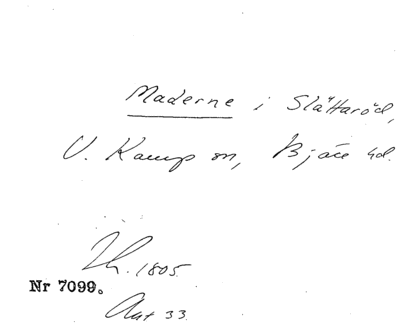 Maderne i Slättaröd,
V. Karup sn, Bjäre hd.
Th. 1805
Nr 7099.
Ant 33